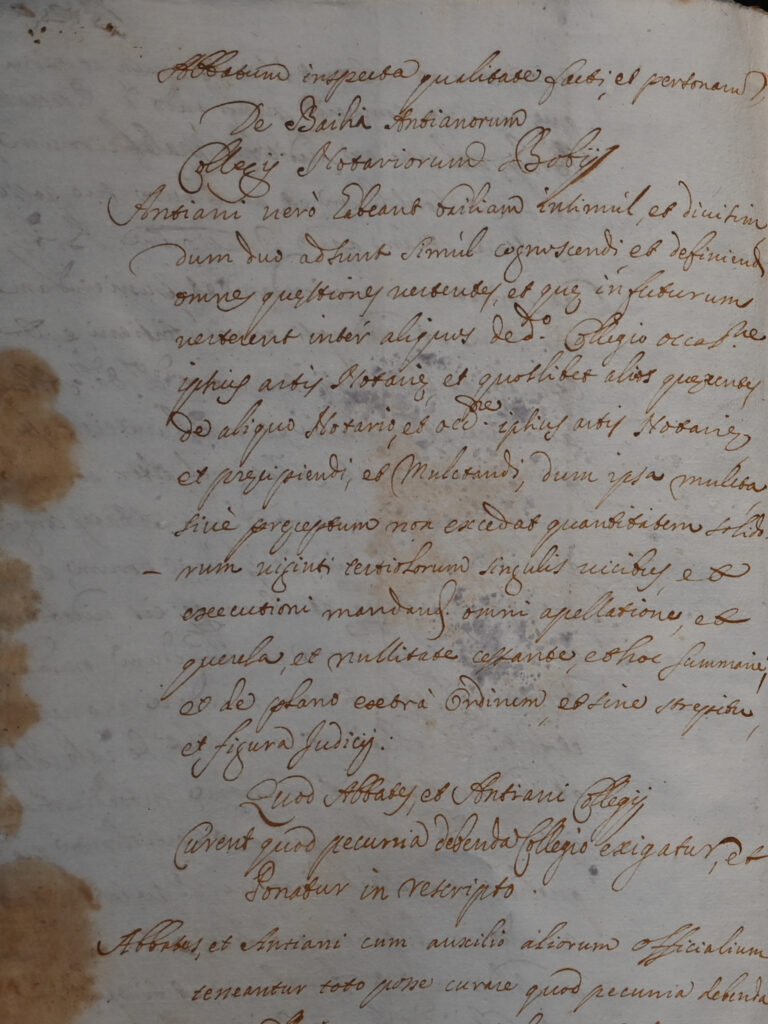 Abbatum inspecta qualitate facti, et personarum
De Bailia Antianorum
Collegij Notariorum Bobij
Antiani verò habeant bailiam insimul, et divisim
dum duo adsint simul cognoscendi et definiendi
omnes questiones vertentes, et que in futurum
verterent inter aliquos de d.º Collegio occas.ne
ipsius artis Notarie, et quoslibet alios querentes
de aliquo Notario, et occ.ne ipsius artis Notarie
et precipiendi, et Mulctandi, dum ipsa mulcta
sivè preceptum non excedat quantitatem solido-
rum viginti tertiolorum singulis vicibus, et
executioni mandandi omni apellatione, et
querela, et nullitate cessante, et hoc summarie,
et de plano extrà Ordinem, et sine strepitu,
et figura Judicij.
Quod Abbates, et Antiani Collegij
Curent quod pecunia debenda Collegio exigatur, et
Ponatur in rescripto.
Abbates, et Antiani cum auxilio aliorum officialium
teneantur toto posse curare quod pecunia debenda